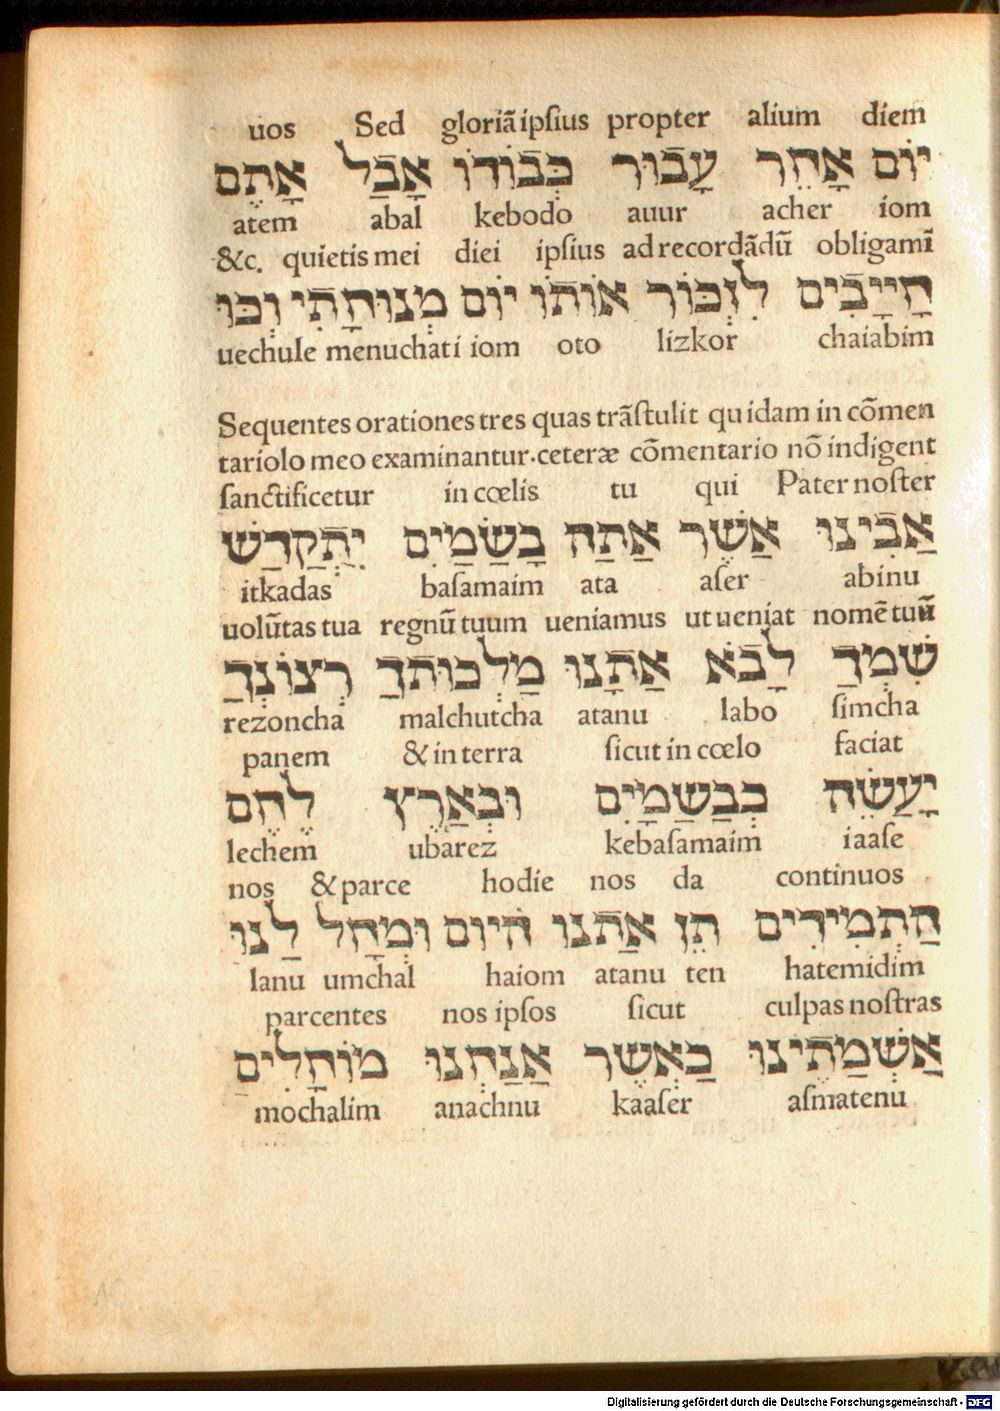 uos Sed gloriã ipſius propter alium diem
יוֹם אָחֵר עָבוּר כְּבוֹדוֹ אָבַל אָתֶם
atem abal kebodo auur acher iom
&c. quietis mei diei ipſius ad recordãdũ obligamĩ
חָיָיבִים לִזְכּוֹר אוֹתוֹ יוֹם מְנוּחָתִי וְכוּ
uechule menuchati iom oto lizkor chaiabim
Sequentes orationes tres quas trãſtulit quidam in cõmen
tariolo meo examinantur.ceteræ cõmentario nõ indigent
ſanctificetur in cœlis tu qui Pater noſter
אַבִינוּ אֲשֶׁר אַתַה בָשַׁמַיִם יִתְקַדַשׁ
itkadas baſamaim ata aſer abinu
uolũtas tua regnũ tuum ueniamus ut ueniat nomẽ tuũ
שִׁמְךַ לָבֹא אַתָנוּ מַלְכוּתְךַ רְצוֹנְךַ
rezoncha malchutcha atanu labo ſimcha
panem & in terra ſicut in cœlo faciat
יָעַשֶׂה כְּבַשַׁמָיִם וּבְאַרֶץ לֶחֶם
lechem ubarez kebaſamaim iaaſe
nos & parce hodie nos da continuos
הַתְמִידִים תֵן אַתָנוּ הַיוֹם וּמְחָל לַנוּ
lanu umchal haiom atanu ten hatemidim
parcentes nos ipſos ſicut culpas noſtras
אַשְׁמַתֵינוּ כַאְשֶׁר אֲנַחְנוּ מוֹחָלִים
mochalim anachnu kaaſer aſmatenu
Digitalisierung gefördert durch die Deutsche Forschungsgemeinschaft - DFG